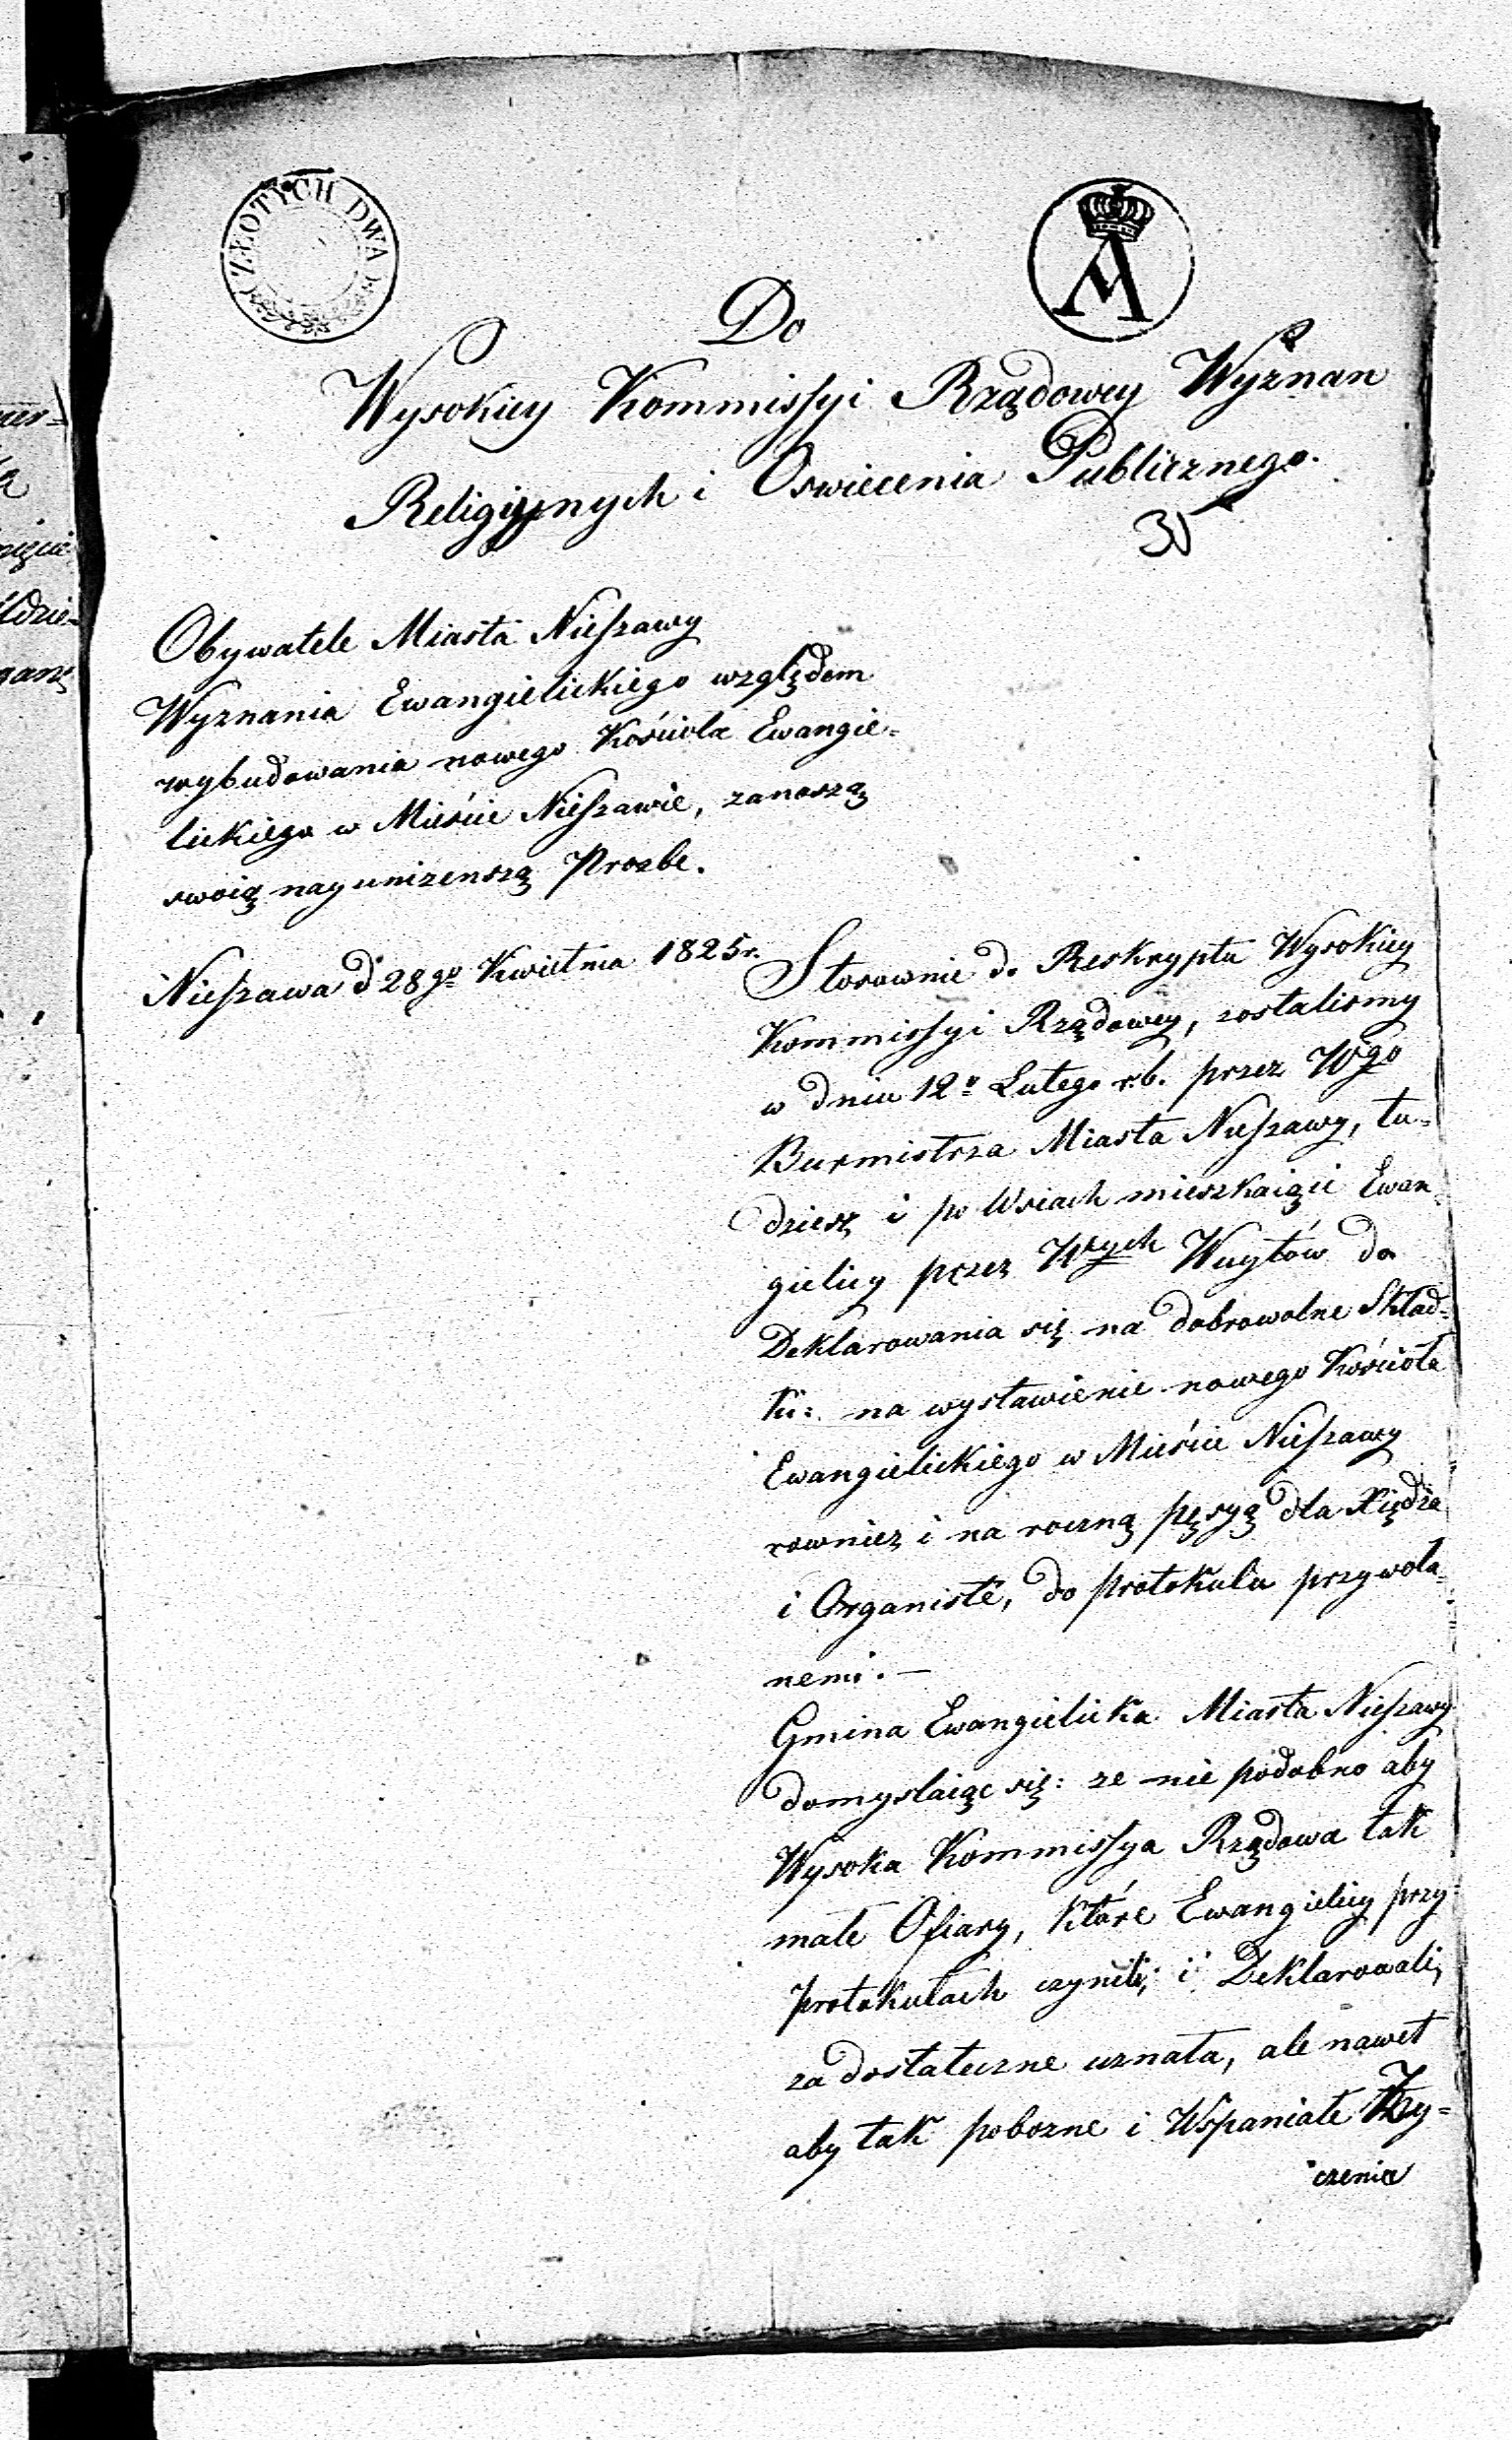 ZŁOTYCH DWA
Do
Wysokiey Kommissyi Rządowey Wyznan
Religiynych i Oswiecenia Publicznego.
Obywatele Miasta Nieszawy
Wyznania Ewangielickiego względem
wybudowania nowego Kościoła Ewangie-
lickiego w Mieście Nieszawie, zanoszą
swoią nayunizenszą Prozbe.
Nieszawa d 28go Kwietnia 1825r.
Stosownie do Reskryptu Wysokiey
Kommissyi Rządowey, zostalismy
w dniu 12o Lutego r.b. przez Wgo
Burmistrza Miasta Nieszawy, tu-
dziesz i po Wsiach mieszkaiąci Ewan-
gielicy przez Wnych Wuytów do
Deklarowania się na dobrowolne Skład-
ki: na wystawienie nowego Kościoła
Ewangielickiego w Mieście Nieszawy
rowniez i na roczną pęsyą dla Xiędza
i Organiste, do protokulu przywoła-
nemi. —
Gmina Ewangielicka Miasta Nieszawy
domyslaiąc się: ze nie podobno aby
Wysoka Kommissya Rządowa tak
małe Ofiary, które Ewangielicy przy
protokułach czynili, i Deklarowali,
za dostateczne uznała, ale nawet
aby tak pobozne i Wspaniałe Zy-
czenia